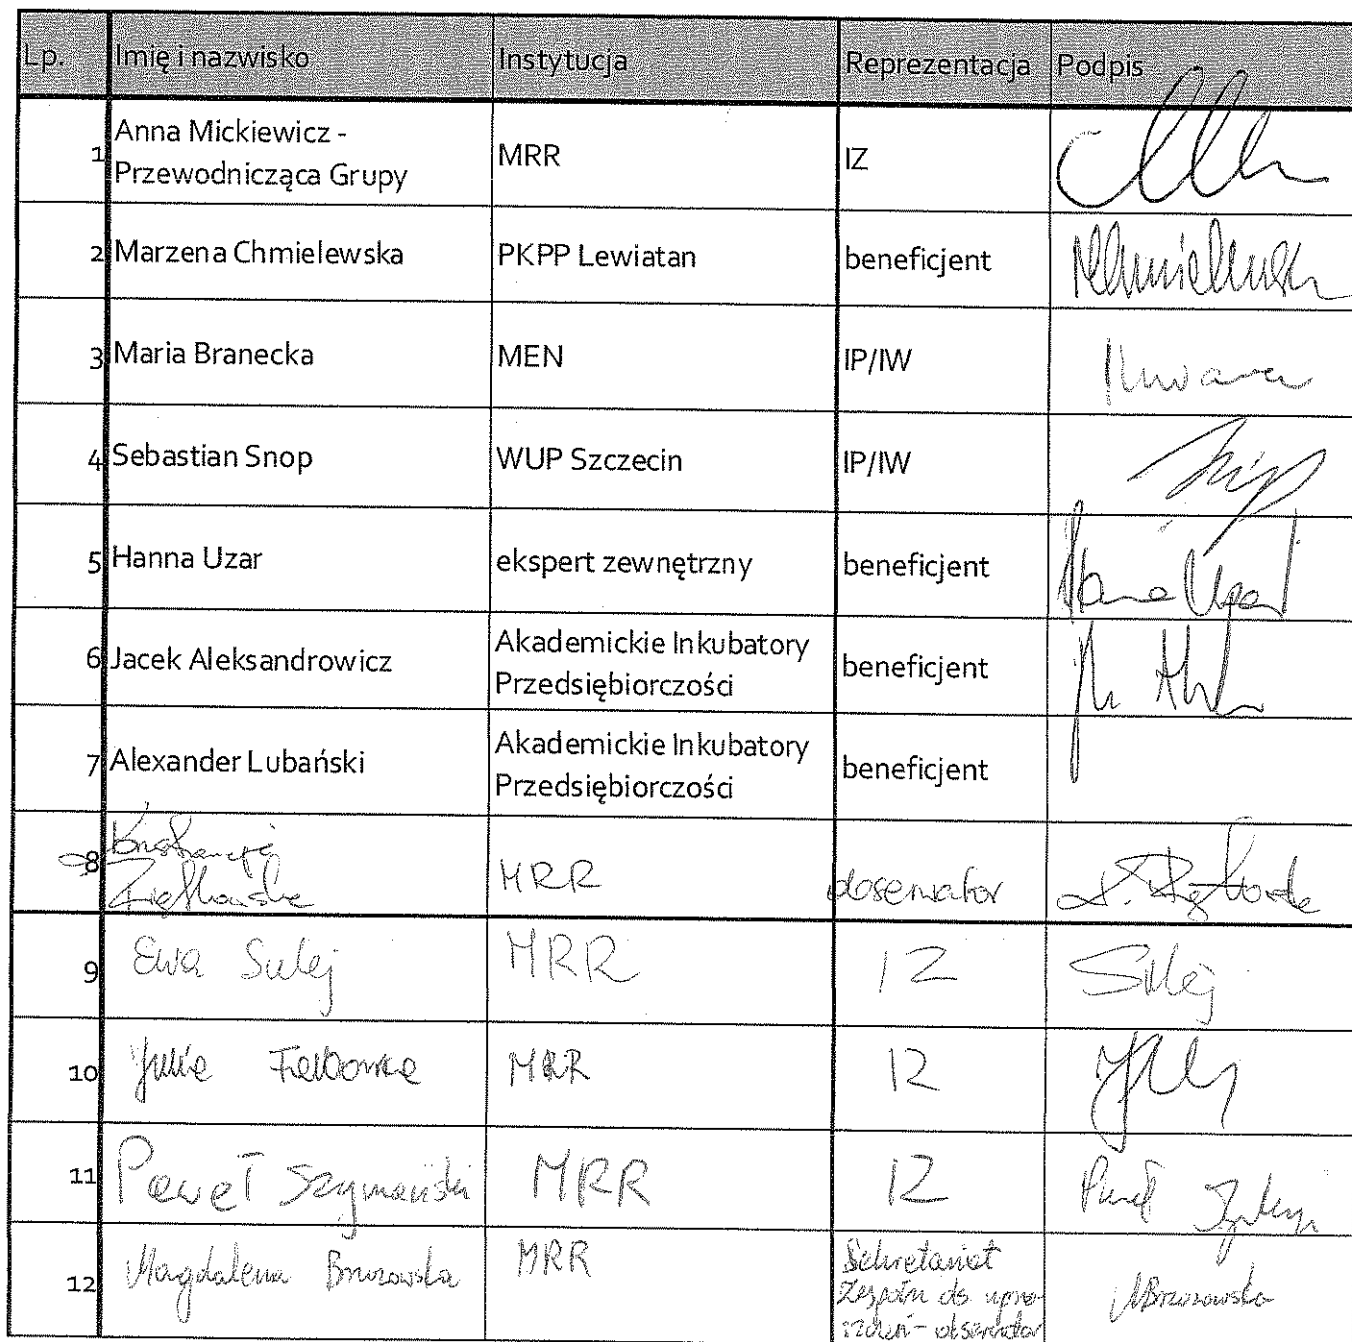 Lp. Imię i nazwisko Instytucja Reprezentacja Podpis
1 Anna Mickiewicz - Przewodnicząca Grupy MRR IZ
2 Marzena Chmielewska PKPP Lewiatan beneficjent
3 Maria Branecka MEN IP/IW
4 Sebastian Snop WUP Szczecin IP/IW
5 Hanna Uzar ekspert zewnętrzny beneficjent
6 Jacek Aleksandrowicz Akademickie Inkubatory Przedsiębiorczości beneficjent
7 Alexander Lubański Akademickie Inkubatory Przedsiębiorczości beneficjent
8 MRR obserwator
9 Ewa Sulej MRR IZ Sulej
10 Julia MRR IZ
11 Paweł Szymański MRR IZ Paweł
12 Magdalena Brzozowska MRR Sekretariat
Zespołu ds. upro-
szczeń - obserwator MBrzozowska